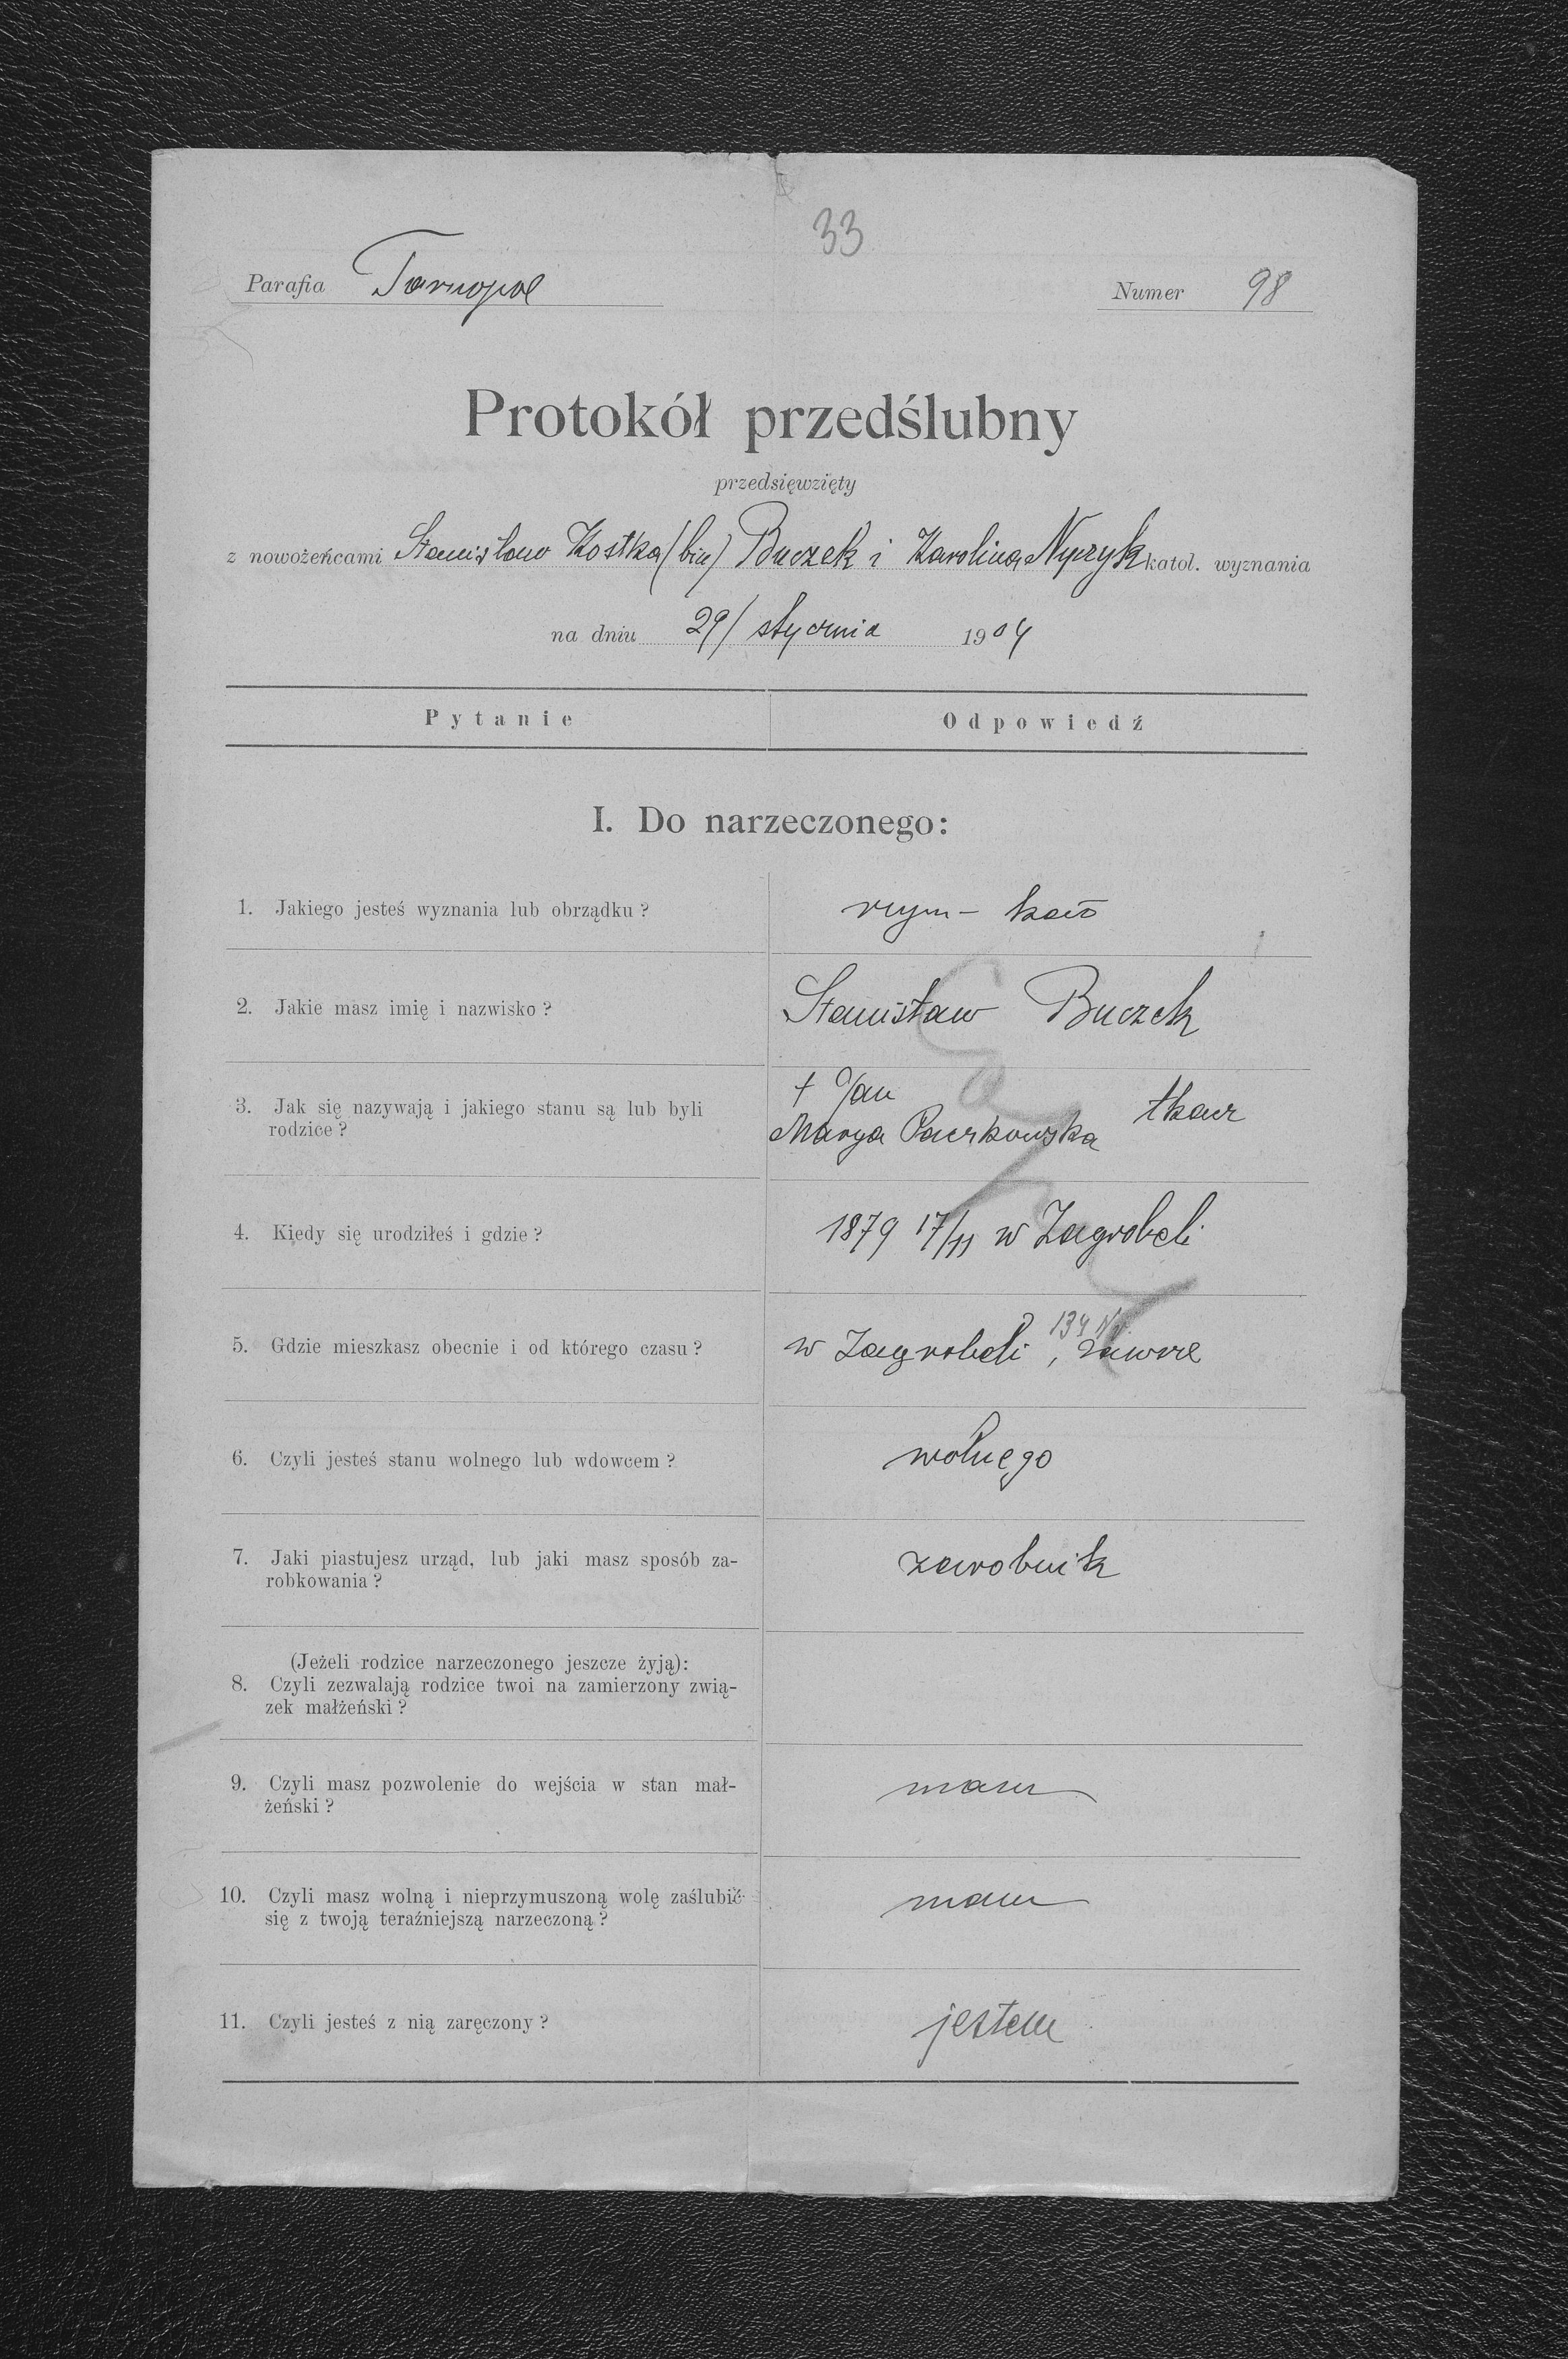 33
Parafia Tarnopol
Numer 98
Protokół przedślubny
przedsięwzięty
z nowożeńcami Stanisław Kostka (bin) Buczek i Karolina Nyczyk katol. wyznania
na dniu 29/ stycznia 1904
Pytanie Odpowiedź
I. Do narzeczonego:
1. Jakiego jesteś wyznania lub obrządku? rzym- kat
2. Jakie masz imię i nazwisko? Stanisław Buczek
3. Jak się nazywają i jakiego stanu są lub byli
rodzice?
† Jan
Marya Paczkowska tkacz
4. Kiedy się urodziłeś i gdzie? 1879 17/11 w Zagrobeli
5. Gdzie mieszkasz obecnie i od którego czasu? w Zagrobeli, 134 N. zawsze
6. Czyli jesteś stanu wolnego lub wdowcem? wolnego
7. Jaki piastujesz urząd, lub jaki masz sposób za-
robkowania?
zarobnik
(Jeżeli rodzice narzeczonego jeszcze żyją):
8. Czyli zezwalają rodzice twoi na zamierzony zwią-
zek małżeński?
9. Czyli masz pozwolenie do wejścia w stan mał-
żeński?
mam
10. Czyli masz wolną i nieprzymuszoną wolę zaślubić
się z twoją teraźniejszą narzeczoną?
mam
11. Czyli jesteś z nią zaręczony? jestem